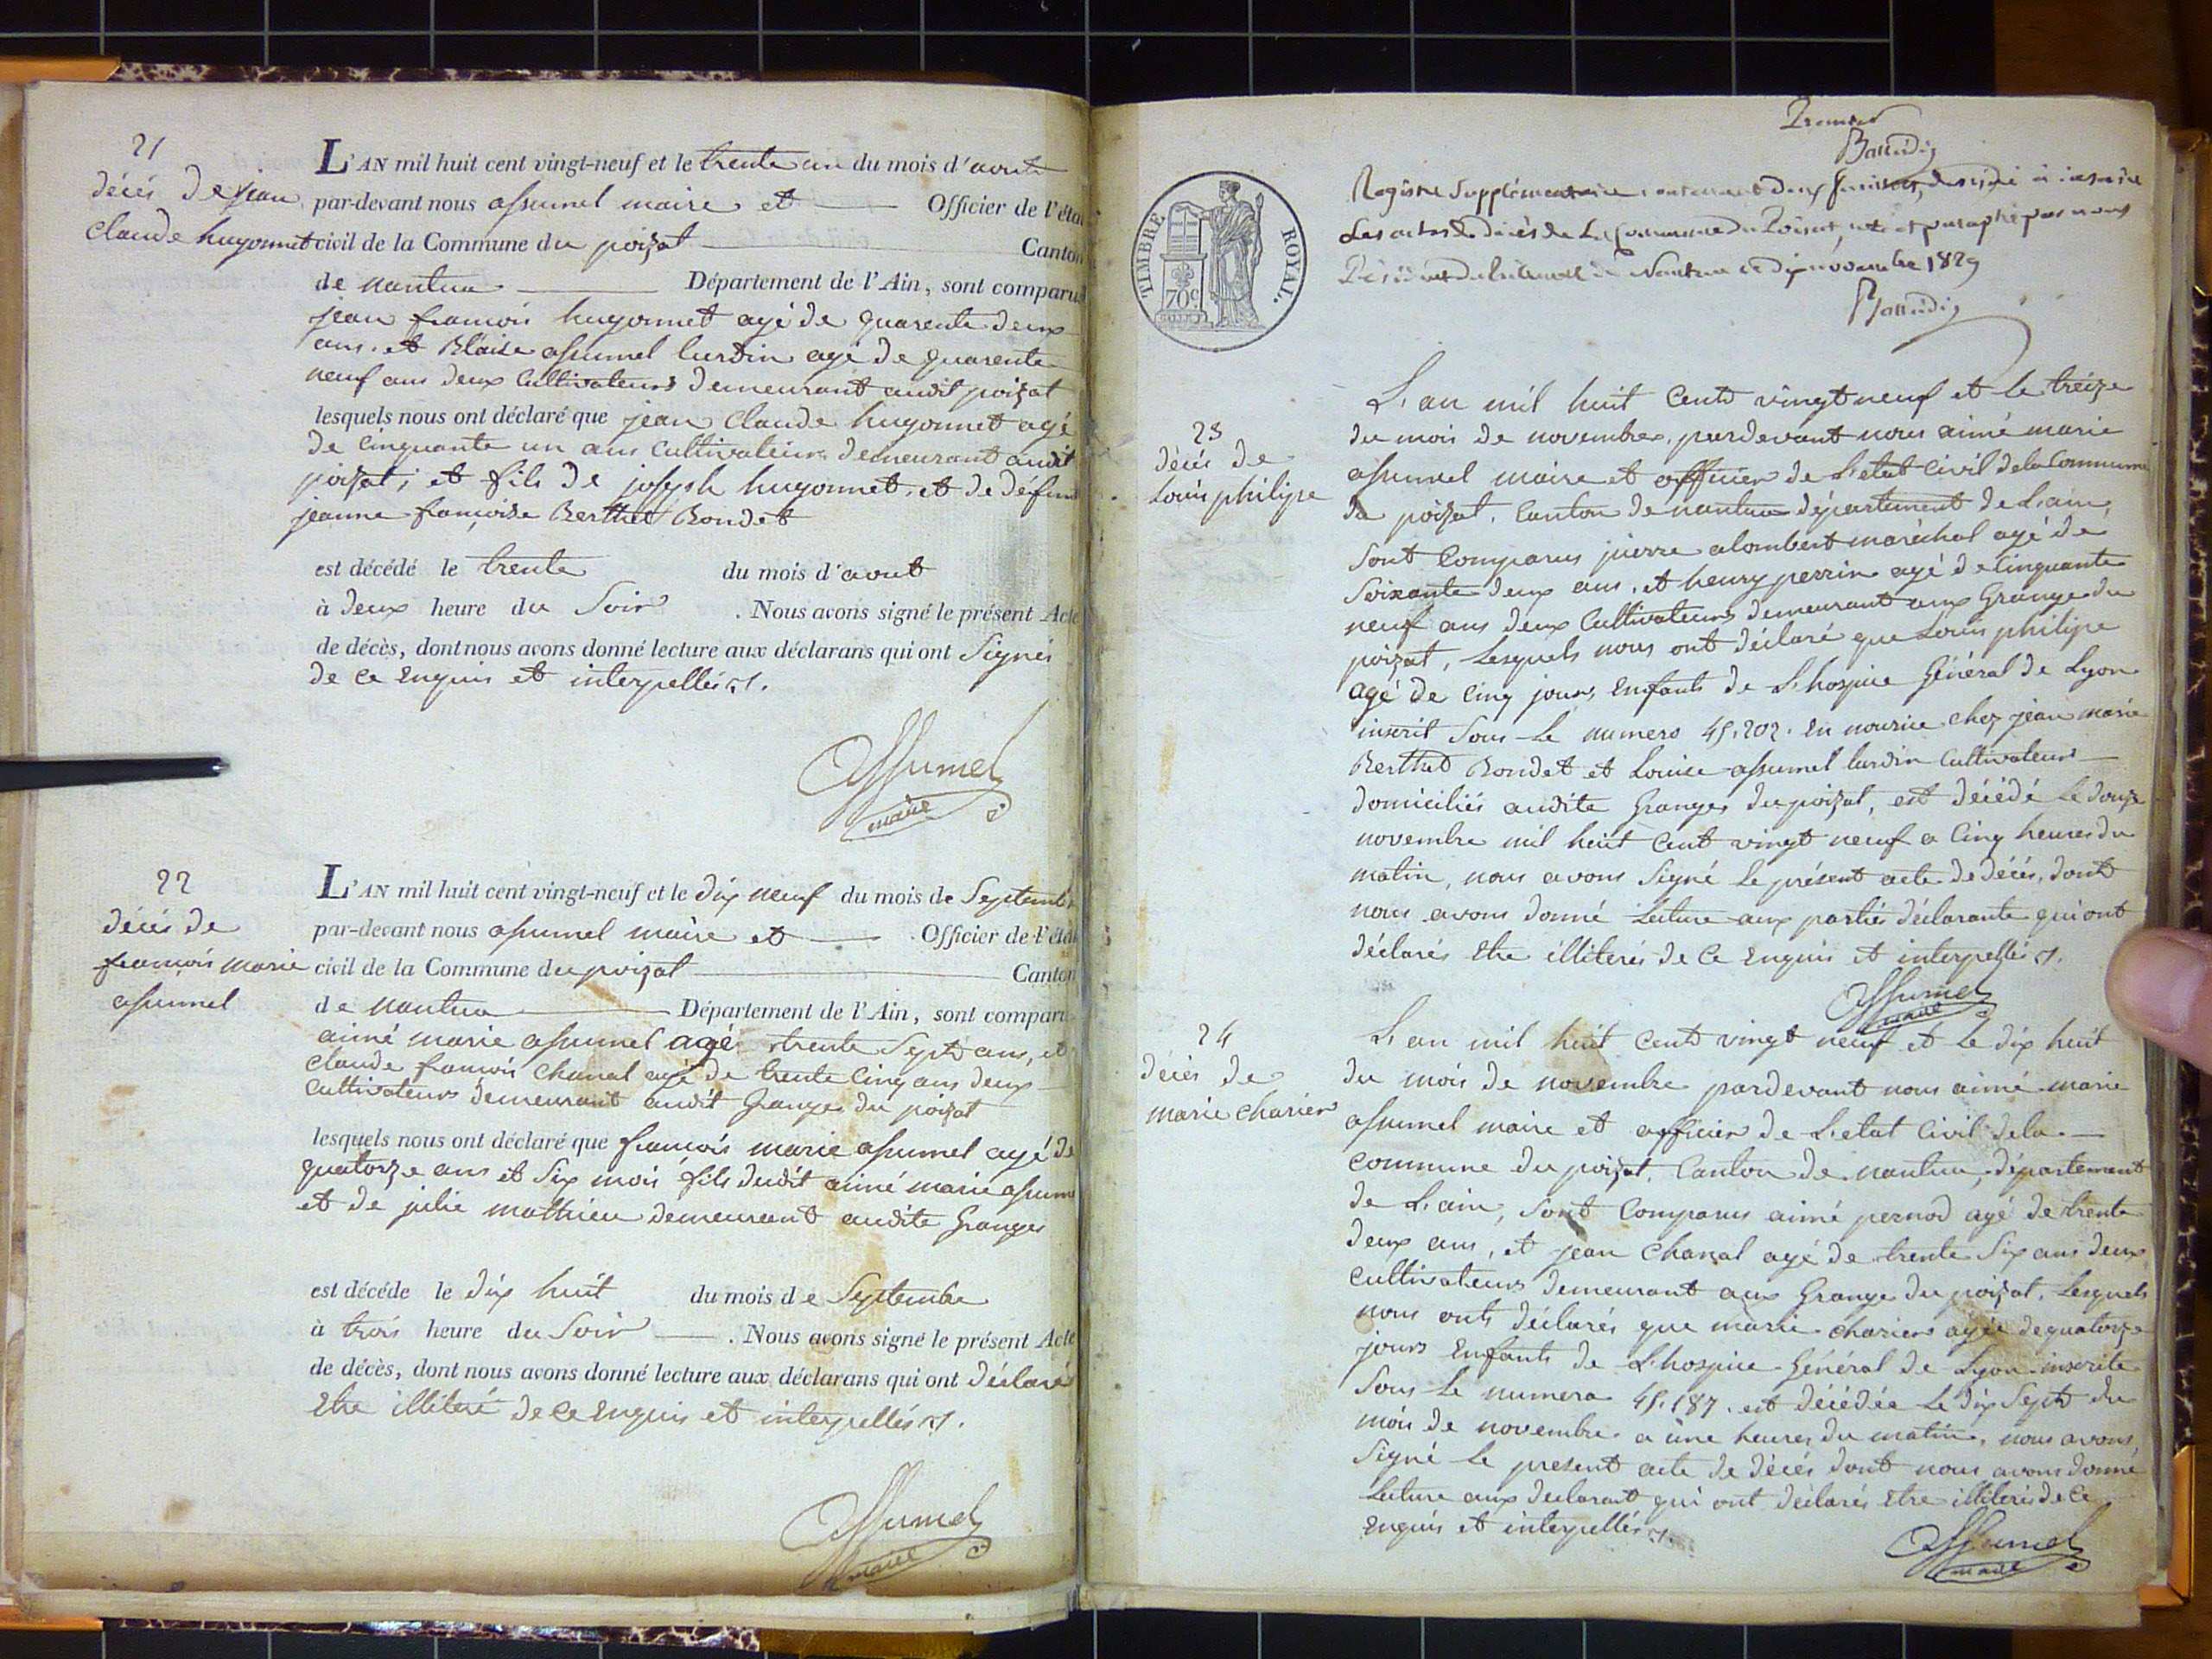 21
décés de jean
claude hugonnet
L'AN mil huit cent vingt-neuf et le trente un du mois d'aout
par-devant nous assumel maire et Officier de l'état
civil de la Commune du poizat Canton
de nantua Département de l'Ain, sont comparus
jean francois hugonnet agé de quarente deux
ans. et Blaise assumel lurdin agé de quarente
neuf ans deux Cultivateurs demeurant audit poizat
lesquels nous ont déclaré que jean claude hugonnet agé
de cinquante un ans Cultivateur demeurant audit
poizat, et fils de joseph hugonnet, et de défunt
jeanne francoise Berthet Bondet
est décédé le trente du mois d'aout
à deux heure du Soir . Nous avons signé le présent Acte
de décès, dont nous avons donné lecture aux déclarans qui ont Signés
de ce Enquis et interpellés ./.
Assumel
maire
22
décés de
francois marie
assumel
L'AN mil huit cent vingt-neuf et le dix neuf du mois de Septembre
par-devant nous assumel maire et Officier de l'état
civil de la Commune du poizat Canton
de nantua Département de l'Ain, sont comparu
aimé marie assumel agé trente Sept ans, et
claude francois Chanal agé de trente Cinq ans deux
Cultivateurs demeurant audit Granges du poizat
lesquels nous ont déclaré que francois marie assumel agé de
quatorze ans et Six mois fils dudit aimé marie assumel
et de julie mathieu demeurant audite Granges
est décéde le dix huit du mois de Septembre
à trois heure du Soir . Nous avons signé le présent Acte
de décès, dont nous avons donné lecture aux déclarans qui ont déclaré
Etre illiteré de ce Enquis et interpellés ./.
Assumel
maire
Premier
Baudin
TIMBRE ROYAL.
70c
Registre Supplémentaire contenant deux feuillets, destiné à inscrire
Les actes de décès de La Commune du Poizat, coté et paraphé par nous
Président du tribunal de Nantua le dix novembre 1829
23
décés de
Louis philipe
L'an mil huit Cent vingt neuf et le treize
du mois de novembre, pardevant nous aimé marie
assumel maire et officier de L'etat Civil de la Commune
du poizat. Canton de nantua département de L'ain,
Sont Comparus pierre alombert maréchal agé de
Soixante deux ans. et henry perrin agé de Cinquante
neuf ans deux Cultivateurs demeurant aux Grange du
poizat, Lesquels nous ont déclaré que Louis philipe
agé de Cinq jours, Enfants de L'hospice Général de Lyon
inscrit Sous Le numero 45.202. En nourice chez jean marie
Berthet Bondet et Louise assumel lurdin Cultivateurs
domiciliés audite Granges du poizat, est décédé Le douze
novembre mil huit Cent vingt neuf a Cinq heures du
matin, nous avons Signé Le présent acte de décés, dont
nous avons donné Lecture aux partiés déclarante qui ont
déclarés Etre illiterés de Ce Enquis et interpellés ./.
Assumel
maire
24
décés de
marie charier
L'an mil huit Cent vingt neuf et Le dix huit
du mois de novembre pardevant nous aimé marie
assumel maire et officier de L'etat Civil de la
Commune du poizat. Canton de nantua, département
de L'ain, Sont Comparus aimé pernod agé de trente
deux ans, et jean Chanal agé de trente Six ans deux
Cultivateurs demeurant aux Grange du poizat. Lesquels
nous onts déclarés que marie charier agée de quatorze
jours Enfants de L'hospice Général de Lyon inscrite
Sous Le numero 45.187. est décédée Le dix Sept du
mois de novembre a une heures du matin, nous avons
Signé Le present acte de décés dont nous avons donné
Lecture aux declarant qui ont déclarés Etre illiterés de Ce
Enquis et interpellés ./.
Assumel
maire